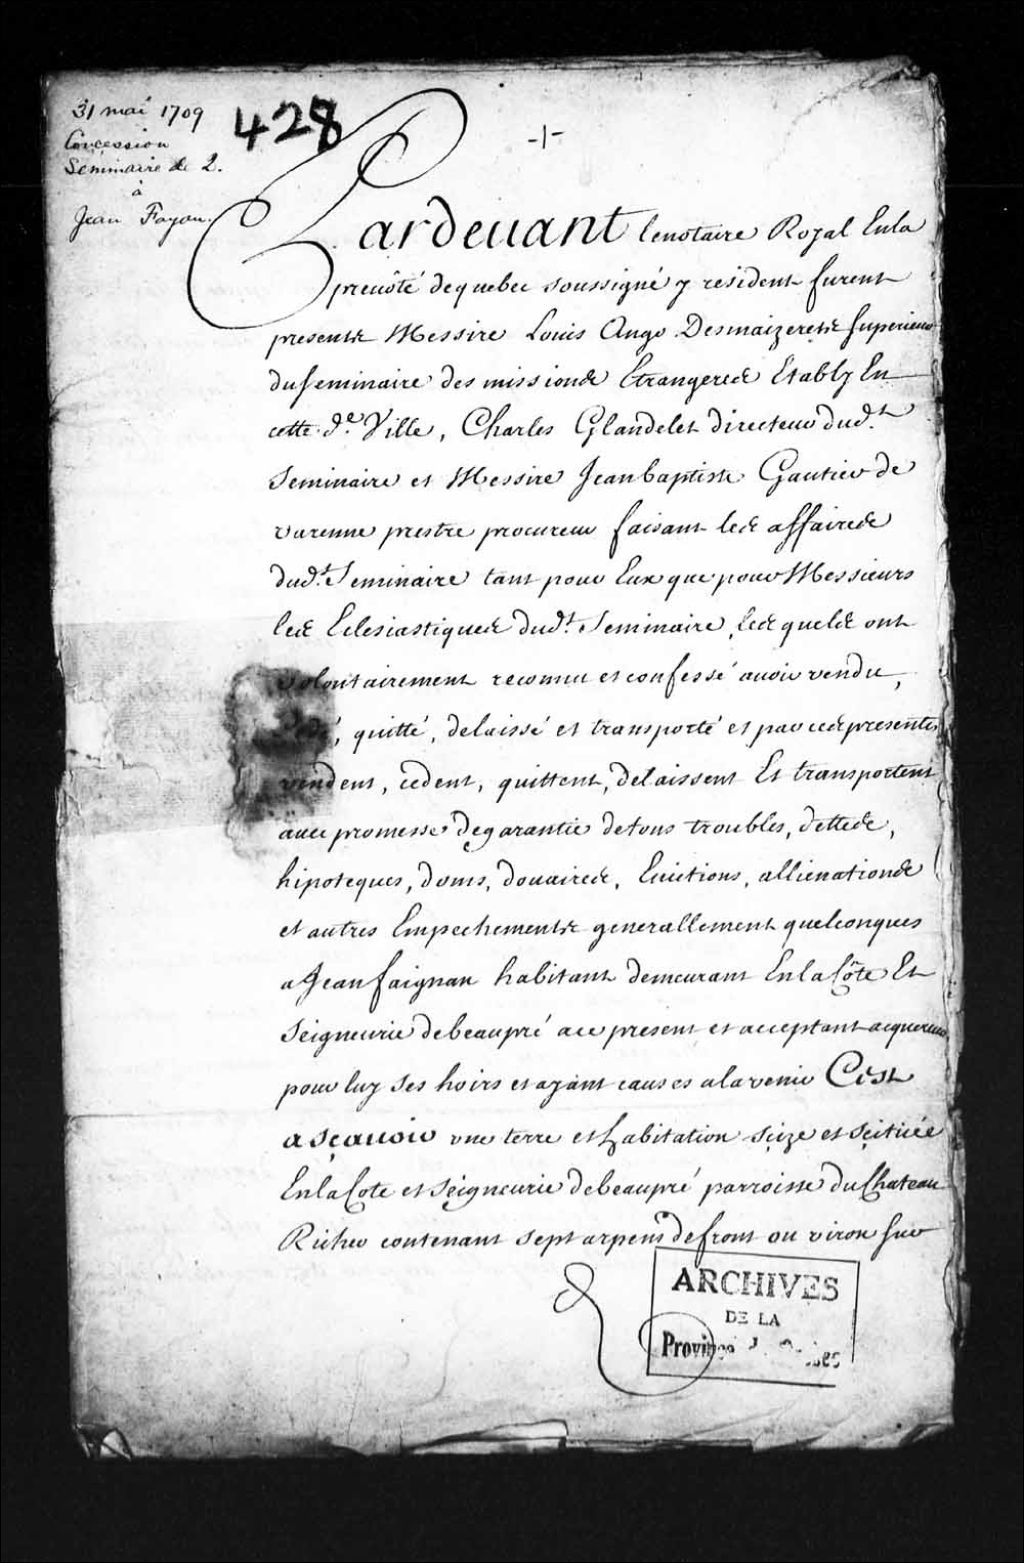 31 mai 1709
Concession
Séminaire de Q.
à
Jean Fayan.
428
-1-
Pardeuant lenotaire Royal Enla
preuôté dequebec soussigné y resident furent
presents Messire Louis Ango Desmaizerets superieur
duseminaire des missions Etrangeres Etably En
cette d.e Ville, Charles Glandelet directeur dud.t
Seminaire et Messire Jeanbaptiste Gautier de
varenne prestre procureur faisant les affaires
dud.t Seminaire tant pour Eux que pour Messieurs
les Eclesiastiques dud.t Seminaire, lesquels ont
volontairement reconnu et confessé auoir vendu,
quitté, delaissé et transporté et par ces presentes
vendent, cedent, quittent, delaissent Et transportent
auec promesse degarantie detous troubles, dettes,
hipoteques, dons, douaires, Euictions, allienations
et autres Empechements generallement quelconques
a Jean faignan habitant demeurant Enla Côte Et
Seigneurie debeaupré ace present et acceptant acquereur
pour luy ses hoirs et ayant causes alavenir C'est
asçauoir vne terre et habitation seize et scituée
Enla Cote et Seigneurie debeaupré parroisse du Chateau
Richer contenant sept arpens defront ou viron sur
ARCHIVES
DE LA
Province